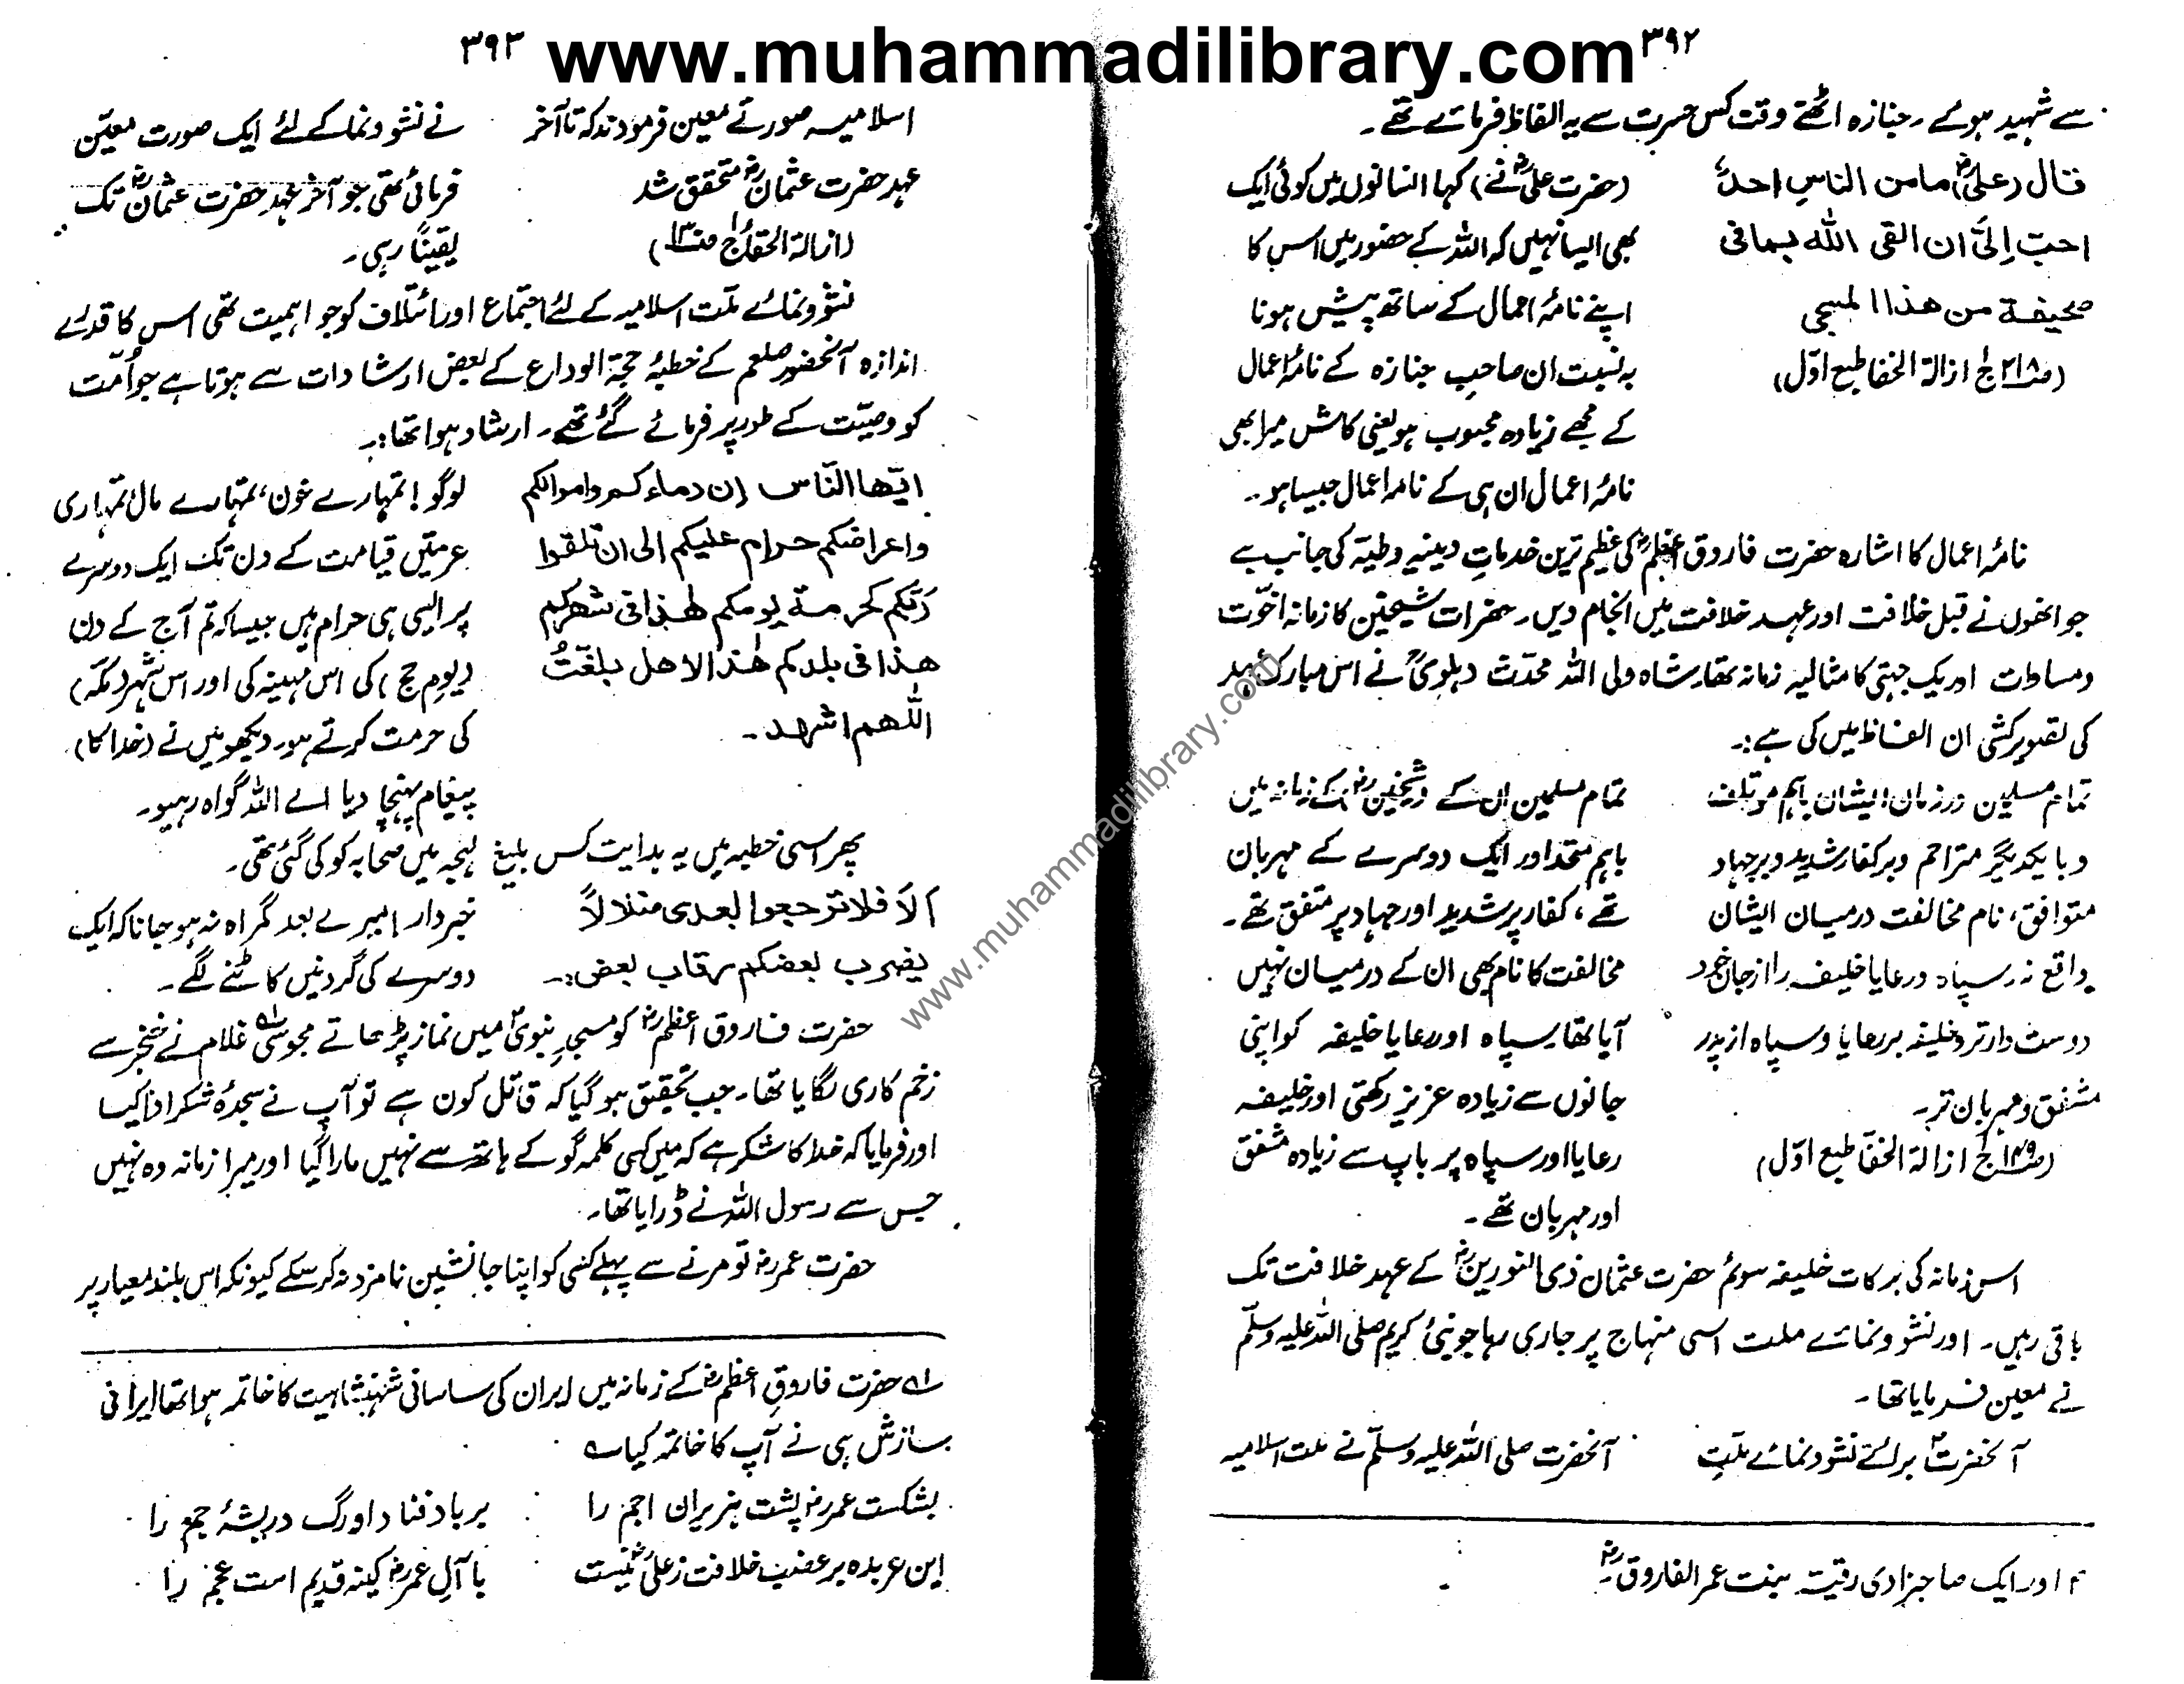 www.muhammadilibrary.com
۳۹۲
سے شہید ہوئے ۔ جنازہ اٹھتے وقت کس حسرت سے یہ الفاظ فرماتے تھے ۔
قال (علیؓ) ما من الناس احدٌ
احب اِلیَّ ان القی اللہ بما فی
صحیفة من ھذا المسجی
(ص۲۱۸ ج۱ ازالۃ الخفا طبع اوّل)
(حضرت علیؓ نے) کہا انسانوں میں کوئی ایک
بھی ایسا نہیں کہ اللہ کے حضور میں اس کا
اپنے نامۂ اعمال کے ساتھ پیش ہونا
بہ نسبت ان صاحبِ جنازہ کے نامۂ اعمال
کے مجھے زیادہ محبوب ہو یعنی کاش میرا بھی
نامۂ اعمال ان ہی کے نامہ اعمال جیسا ہو ۔
نامۂ اعمال کا اشارہ حضرت فاروق اعظمؓ کی عظیم ترین خدماتِ دینیہ وطیہ کی جانب ہے
جو انھوں نے قبل خلافت اور عہد خلافت میں انجام دیں ۔ حضرات شیخین کا زمانہ اخوّت
و مساوات اور یک جہتی کا مثالیہ زمانہ تھا۔ شاہ ولی اللہ محدّث دہلویؒ نے اس مبارک عہد
کی تصویر کشی ان الفاظ میں کی ہے :۔
تمام مسلمین در زمان ایشان باہم موتلف
و با یکدیگر متراحم و بر کفار شدید و بر جہاد
متوافق، نام مخالفت درمیان ایشان
واقع نہ، سپاہ و رعایا خلیفہ را از جان خود
دوست دار تر و خلیفہ بر رعایا و سپاہ از پدر
مشفق و مہربان تر ۔
(ص۱۴۹ ج۱ ازالۃ الخفا طبع اوّل)
تمام مسلمین ان کے (شیخینؓ) کے زمانہ میں
باہم متحد اور ایک دوسرے کے مہربان
تھے، کفار پر شدید اور جہاد پر متفق تھے ۔
مخالفت کا نام بھی ان کے درمیان نہیں
آیا تھا۔ سپاہ اور رعایا خلیفہ کو اپنی
جانوں سے زیادہ عزیز رکھتی اور خلیفہ
رعایا اور سپاہ پر باپ سے زیادہ مشفق
اور مہربان تھے ۔
اس زمانہ کی برکات خلیفہ سوئم حضرت عثمان ذی النورینؓ کے عہد خلافت تک
باقی رہیں ۔ اور نشو و نمائے ملت اسی منہاج پر جاری رہا جو نبیٔ کریم صلی اللہ علیہ وسلّم
نے معین فرمایا تھا ۔
آنحضرتؐ برائے نشو و نمائے ملّتِ
آنحضرت صلی اللہ علیہ وسلّم نے ملت اسلامیہ
اور ایک صاحبزادی رقیہ بنت عمر الفاروقؓ
۳۹۳
اسلامیہ صورتے معین فرمودند کہ تا آخر
عہد حضرت عثمانؓ متحقق شد
نے نشو و نما کے لئے ایک صورت معیّن
فرمائی تھی جو آخر عہد حضرت عثمانؓ تک
یقیناً رہی ۔
نشو و نمائے ملّت اسلامیہ کے لئے اجتماع اور ائتلاف کو جو اہمیت تھی اس کا قدرے
اندازہ آنحضور صلعم کے خطبۂ حجۃ الوداع کے بعض ارشادات سے ہوتا ہے جو اُمّت
کو وصیّت کے طور پر فرمائے گئے تھے ۔ ارشاد ہوا تھا :۔
ایّھا النّاس اِن دماءکم واموالکم
واعراضکم حرام علیکم الی ان تلقوا
رَبّکم کحرمة یومکم ھٰذا فی شھرکم
ھذا فی بلدکم ھٰذا الا ھل بلغّتُ
اللّٰھم اشھد ۔
لوگو ! تمہارے خون، تمہارے مال تمہاری
عزمتیں قیامت کے دن تک ایک دوسرے
پر ایسی ہی حرام ہیں جیسا کہ تم آج کے دن
(یومِ حج) کی اس مہینہ کی اور اس شہر (مکہ)
کی حرمت کرتے ہو۔ دیکھو میں نے (خدا کا)
پیغام پہنچا دیا اے اللہ گواہ رہیو ۔
پھر اسی خطبہ میں یہ ہدایت کس بلیغ لہجہ میں صحابہ کو کی گئی تھی ۔
اَلاَ فلا ترجعوا بعدی ضلالاً
یضرب بعضکم رقاب بعض :۔
خبردار ! میرے بعد گمراہ نہ ہو جانا کہ ایک
دوسرے کی گردنیں کاٹنے لگے ۔
حضرت فاروق اعظمؓ کو مسجدِ نبویؐ میں نماز پڑھاتے مجوسی۱؎ غلام نے خنجر سے
زخم کاری لگایا تھا ۔ جب تحقیق ہو گیا کہ قاتل کون ہے تو آپ نے سجدۂ شکر ادا کیا
اور فرمایا کہ خدا کا شکر ہے کہ میں کسی کلمہ گو کے ہاتھ سے نہیں مارا گیا اور میرا زمانہ وہ نہیں
جس سے رسول اللہ نے ڈرایا تھا ۔
حضرت عمرؓ تو مرنے سے پہلے کسی کو اپنا جانشین نامزد نہ کر سکے کیونکہ اس بلند معیار پر
۱؎ حضرت فاروقِ اعظمؓ کے زمانہ میں ایران کی ساسانی شہنشاہیت کا خاتمہ ہوا تھا ایرانی
سازش ہی نے آپ کا خاتمہ کیا ؎
بشکست عمرؓ پشت ہزبران اجم را
بر باد فنا داد رگ و ریشۂ جم را
این عربدہ بر غصب خلافت ز علیؓ نیست
با آلِ عمرؓ کینہ قدیم است عجم را
www.muhammadilibrary.com